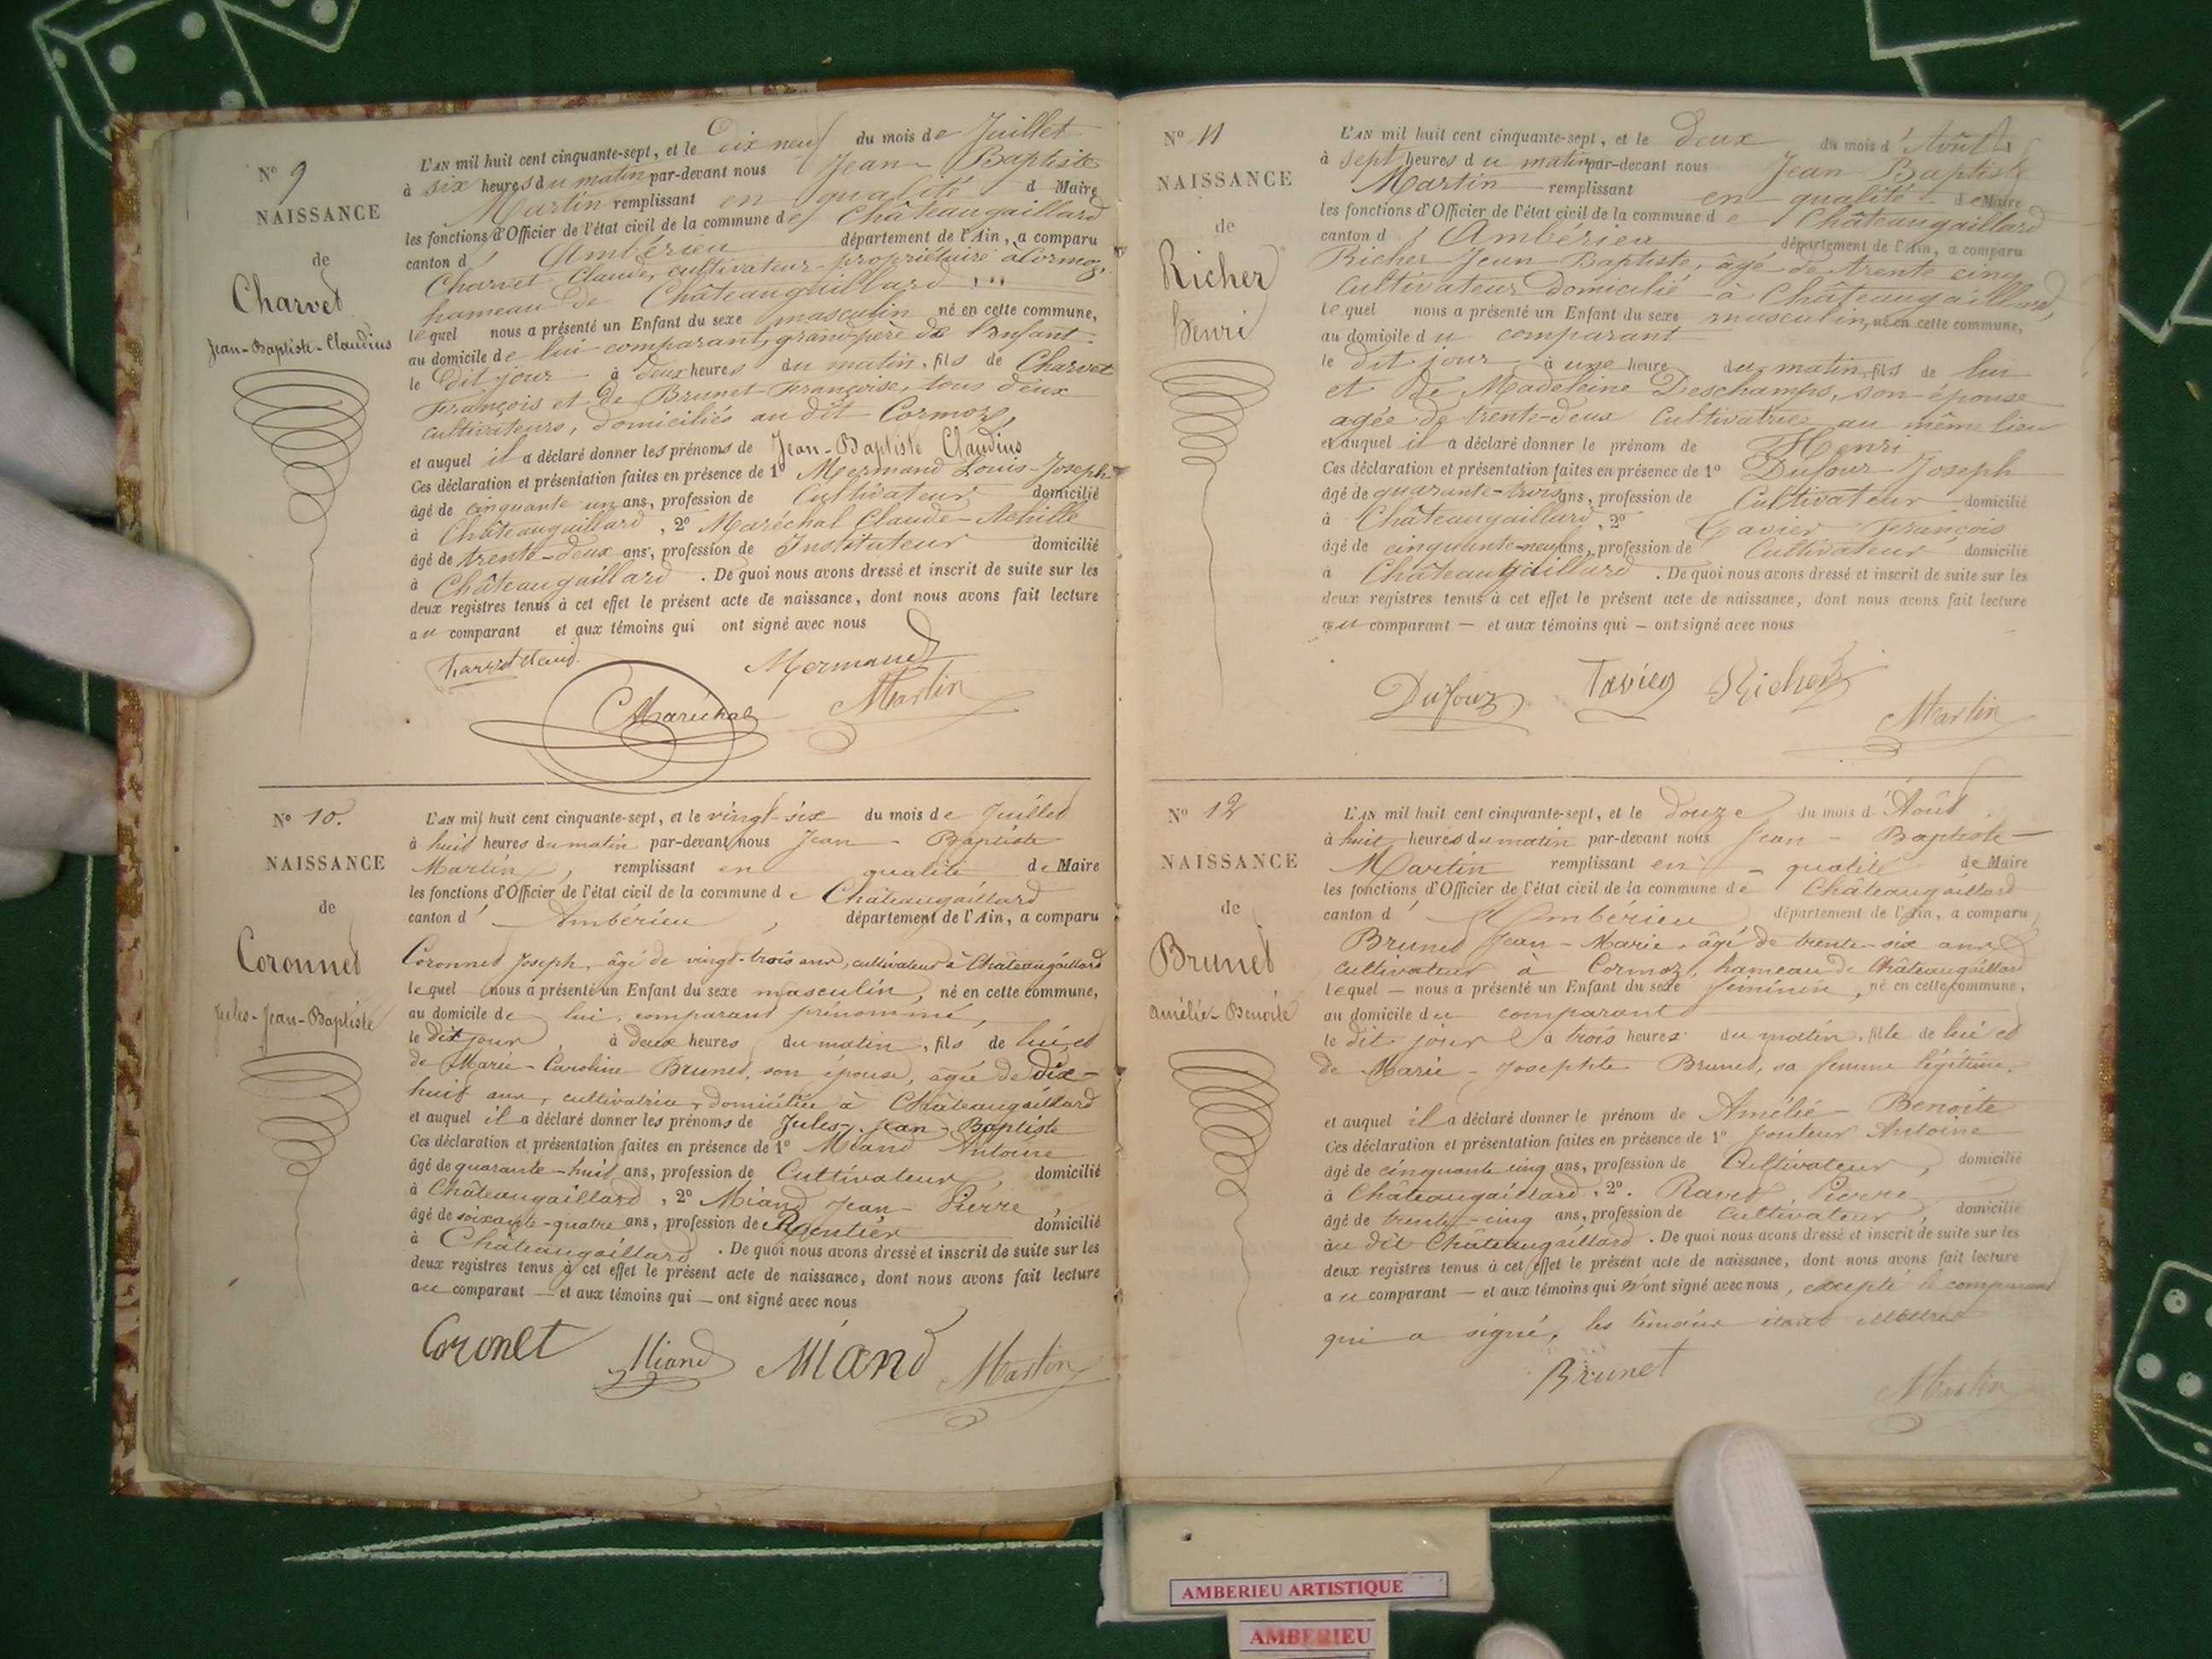 N° 9
NAISSANCE
de
Charvet
Jean-Baptiste-Claudius
L'AN mil huit cent cinquante-sept, et le dix neuf du mois de Juillet
à six heures du matin par-devant nous Jean-Baptiste
Martin remplissant en qualité d Maire
les fonctions d'Officier de l'état civil de la commune de Châteaugaillard
canton d' Ambérieu département de l'Ain, a comparu
Charvet Claude, cultivateur-propriétaire à Cormoz,
hameau de Châteaugaillard
lequel nous a présenté un Enfant du sexe masculin né en cette commune,
au domicile de lui comparant, grand-père de l'Enfant
le dit jour à deux heures du matin, fils de Charvet
François et de Brunet Françoise, tous deux
cultivateurs, domiciliés au dit Cormoz,
et auquel il a déclaré donner les prénoms de Jean-Baptiste Claudius
Ces déclaration et présentation faites en présence de 1° Mermand Louis-Joseph
âgé de cinquante un ans, profession de Cultivateur domicilié
à Châteaugaillard, 2° Maréchal Claude-Achille
âgé de trente-deux ans, profession de Instituteur domicilié
à Châteaugaillard. De quoi nous avons dressé et inscrit de suite sur les
deux registres tenus à cet effet le présent acte de naissance, dont nous avons fait lecture
au comparant et aux témoins qui ont signé avec nous
Mermand
CMaréchal Martin
N° 10.
NAISSANCE
de
Coronnet
Jules-Jean-Baptiste
L'AN mil huit cent cinquante-sept, et le vingt-six du mois de Juillet
à huit heures du matin par-devant nous Jean-Baptiste
Martin, remplissant en qualité de Maire
les fonctions d'Officier de l'état civil de la commune de Châteaugaillard
canton d' Ambérieu, département de l'Ain, a comparu
Coronnet Joseph, âgé de vingt-trois ans, cultivateur à Châteaugaillard
lequel nous a présenté un Enfant du sexe masculin, né en cette commune,
au domicile de lui comparant prénommé,
le dit jour, à deux heures du matin, fils de lui et
de Marie-Caroline Brunet, son épouse, âgée de dix-
huit ans, cultivatrice, domiciliée à Châteaugaillard
et auquel il a déclaré donner les prénoms de Jules-Jean-Baptiste
Ces déclaration et présentation faites en présence de 1° Miand Antoine
âgé de quarante-huit ans, profession de Cultivateur, domicilié
à Châteaugaillard, 2° Miand Jean-Pierre,
âgé de soixante-quatre ans, profession de Rentier domicilié
à Châteaugaillard. De quoi nous avons dressé et inscrit de suite sur les
deux registres tenus à cet effet le présent acte de naissance, dont nous avons fait lecture
au comparant — et aux témoins qui — ont signé avec nous
Coronet Miand Miand Martin
N° 11
NAISSANCE
de
Richer
henri
L'AN mil huit cent cinquante-sept, et le deux du mois d'Août
à sept heures du matin par-devant nous Jean Baptiste
Martin remplissant en qualité de Maire
les fonctions d'Officier de l'état civil de la commune de Châteaugaillard
canton d'Ambérieu département de l'Ain, a comparu
Richer Jean Baptiste, âgé de trente cinq
Cultivateur domicilié à Châteaugaillard,
lequel nous a présenté un Enfant du sexe masculin, né en cette commune,
au domicile du comparant
le dit jour à une heure du matin, fils de lui
et de Madeleine Deschamps, son épouse
agée de trente-deux Cultivatrice au même lieu
et auquel il a déclaré donner le prénom de Henri
Ces déclaration et présentation faites en présence de 1° Dufour Joseph
âgé de quarante-trois ans, profession de Cultivateur domicilié
à Châteaugaillard, 2° Tavier François
âgé de cinquante-neuf ans, profession de Cultivateur domicilié
à Châteaugaillard. De quoi nous avons dressé et inscrit de suite sur les
deux registres tenus à cet effet le présent acte de naissance, dont nous avons fait lecture
au comparant — et aux témoins qui — ont signé avec nous
Dufour Richer
Martin
N° 12
NAISSANCE
de
Brunet
amélie-Benoite
L'AN mil huit cent cinquante-sept, et le douze du mois d'Août
à huit heures du matin par-devant nous Jean-Baptiste
Martin remplissant en qualité de Maire
les fonctions d'Officier de l'état civil de la commune de Châteaugaillard
canton d' Ambérieu département de l'Ain, a comparu
Brunet Jean-Marie, âgé de trente-six ans
cultivateur à Cormoz, hameau de Châteaugaillard
lequel — nous a présenté un Enfant du sexe féminin, né en cette commune,
au domicile du comparant
le dit jour à trois heures du matin, fille de lui et
de Marie-Josephte Brunet, sa femme légitime.
et auquel il a déclaré donner le prénom de Amélie-Benoite
Ces déclaration et présentation faites en présence de 1° Jouteur Antoine
âgé de cinquante cinq ans, profession de Cultivateur, domicilié
à Châteaugaillard, 2°. Ravet Pierre
âgé de trente-cinq ans, profession de cultivateur, domicilié
au dit Châteaugaillard. De quoi nous avons dressé et inscrit de suite sur les
deux registres tenus à cet effet le présent acte de naissance, dont nous avons fait lecture
au comparant — et aux témoins qui n'ont signé avec nous, excepté le comparant
qui a signé, les témoins étant illettrés
Brunet
Martin
AMBERIEU ARTISTIQUE
AMBERIEU